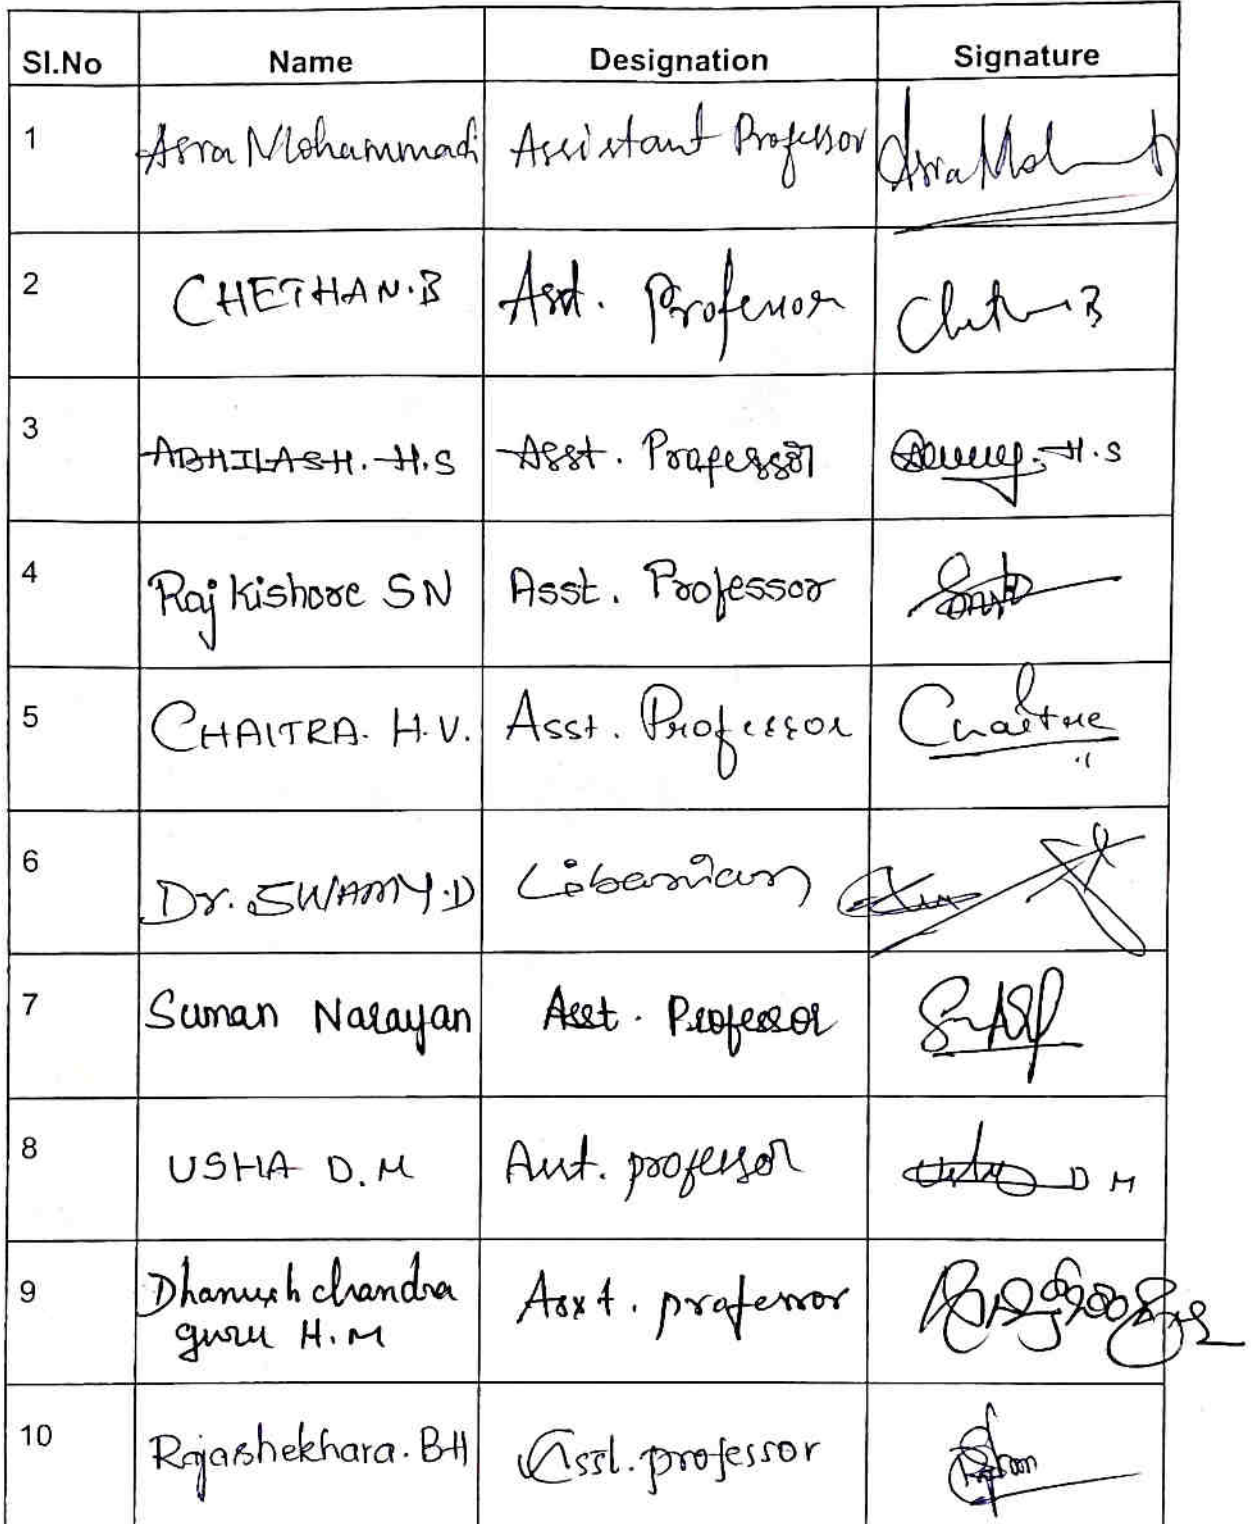 Sl.No Name Designation Signature
1 Asra Mohammadi Assistant Professor Asra Moh
2 CHETHAN.B Asst. Professor Chethan B
3 ABHILASH. H.S Asst. Professor H.S
4 Raj Kishore SN Asst. Professor
5 CHAITRA. H.V. Asst. Professor Chaitra
6 Dr. SWAMY.D Librarian
7 Suman Narayan Asst. Professor
8 USHA D.M Asst. professor D M
9 Dhanush chandra Asst. professor
guru H.M
10 Rajashekhara. BH Asst. professor